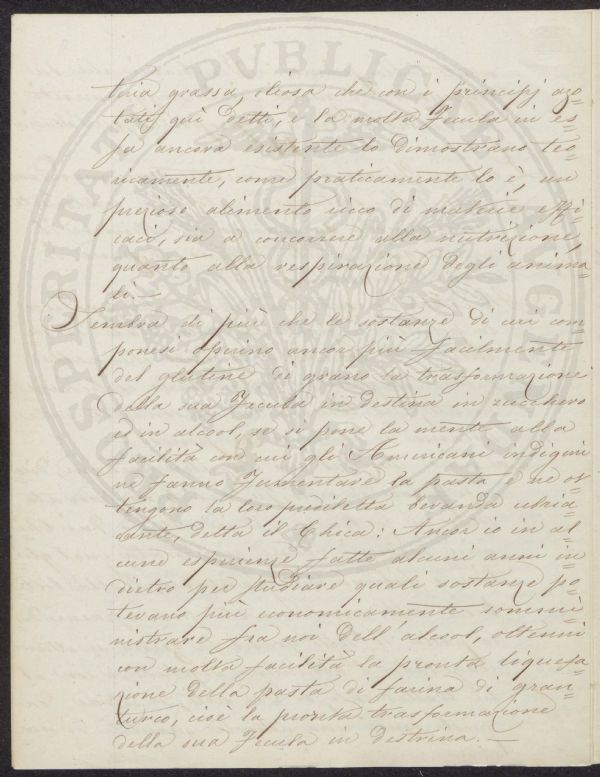 teria grassa, oleosa che con i principj azo=
tati quì detti, e la molta Fecula in es=
sa ancora esistente lo dimostrano teo=
ricamente, come praticamente lo è, un
prezioso alimento ricco di materie effi=
caci, sia a concorrere alla nutrizione,
quanto alla respirazione degli anima=
li.—
Sembra di più che le sostanze di cui com=
ponesi operino ancor più facilmente
del glutine di grano la trasformazione
della sua Fecula in destina in zucchero
ed in alcool, se si pone la mente alla
facilità con cui gli Americani indigeni
ne fanno Fermentare la pasta e ne ot=
tengono la loro prediletta bevanda ubria=
cante, detta il Chica: Ancor io in al=
cune esperienze fatte alcuni anni in=
dietro per studiare quali sostanze po=
tevano più economicamente sommi=
nistrare fra noi dell'alcool, ottenni
con molta facilità la pronta liquefa=
zione della pasta di farina di gran=
turco, cioè la pronta trasformazione
della sua Fecula in destrina.—